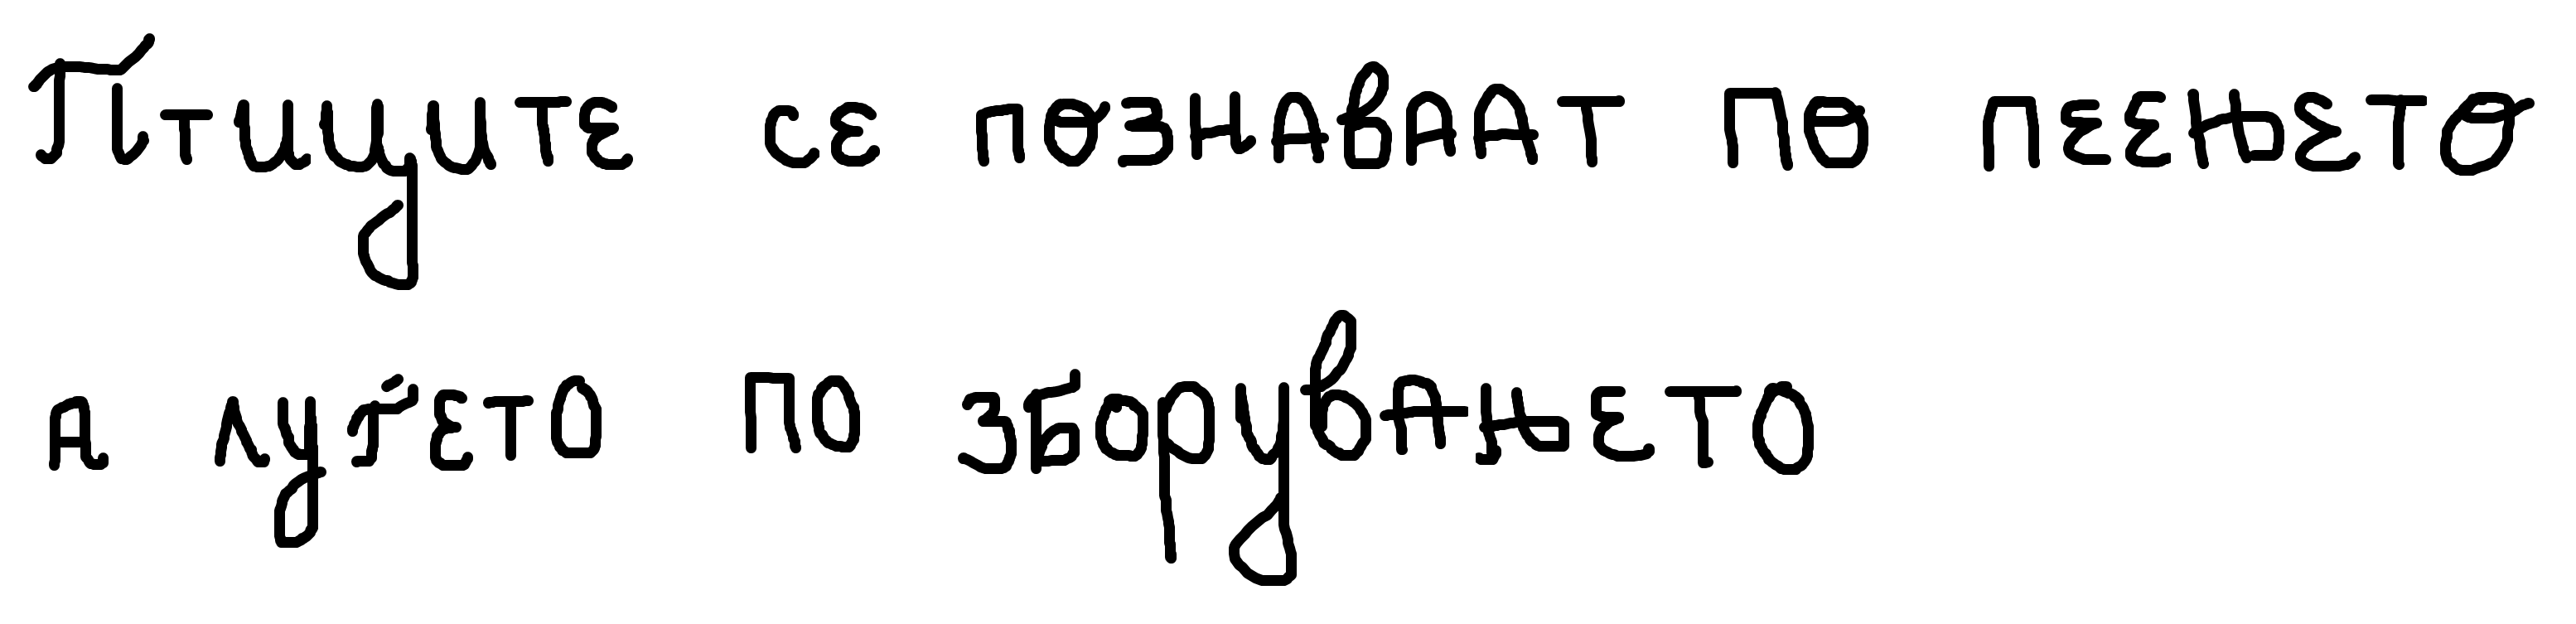 Птиците се познаваат по пеењето
а луѓето по зборувањето